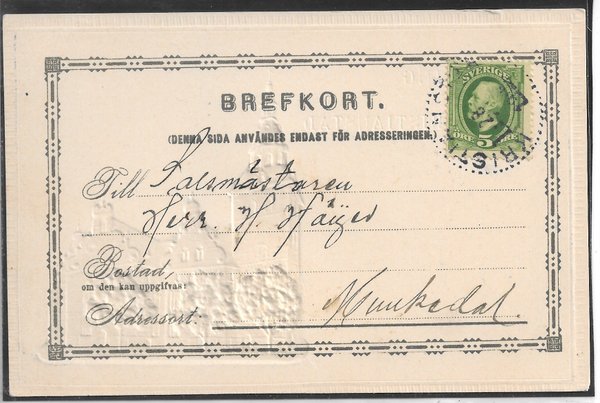 BREFKORT.
(DENNA SIDA ANVÄNDES ENDAST FÖR ADRESSERINGEN.)
SVERIGE
ÖRE 5
KRISTI
Till
Herr. H.
Bostad,
om den kan uppgifvas:
Adressort: Munkedal.